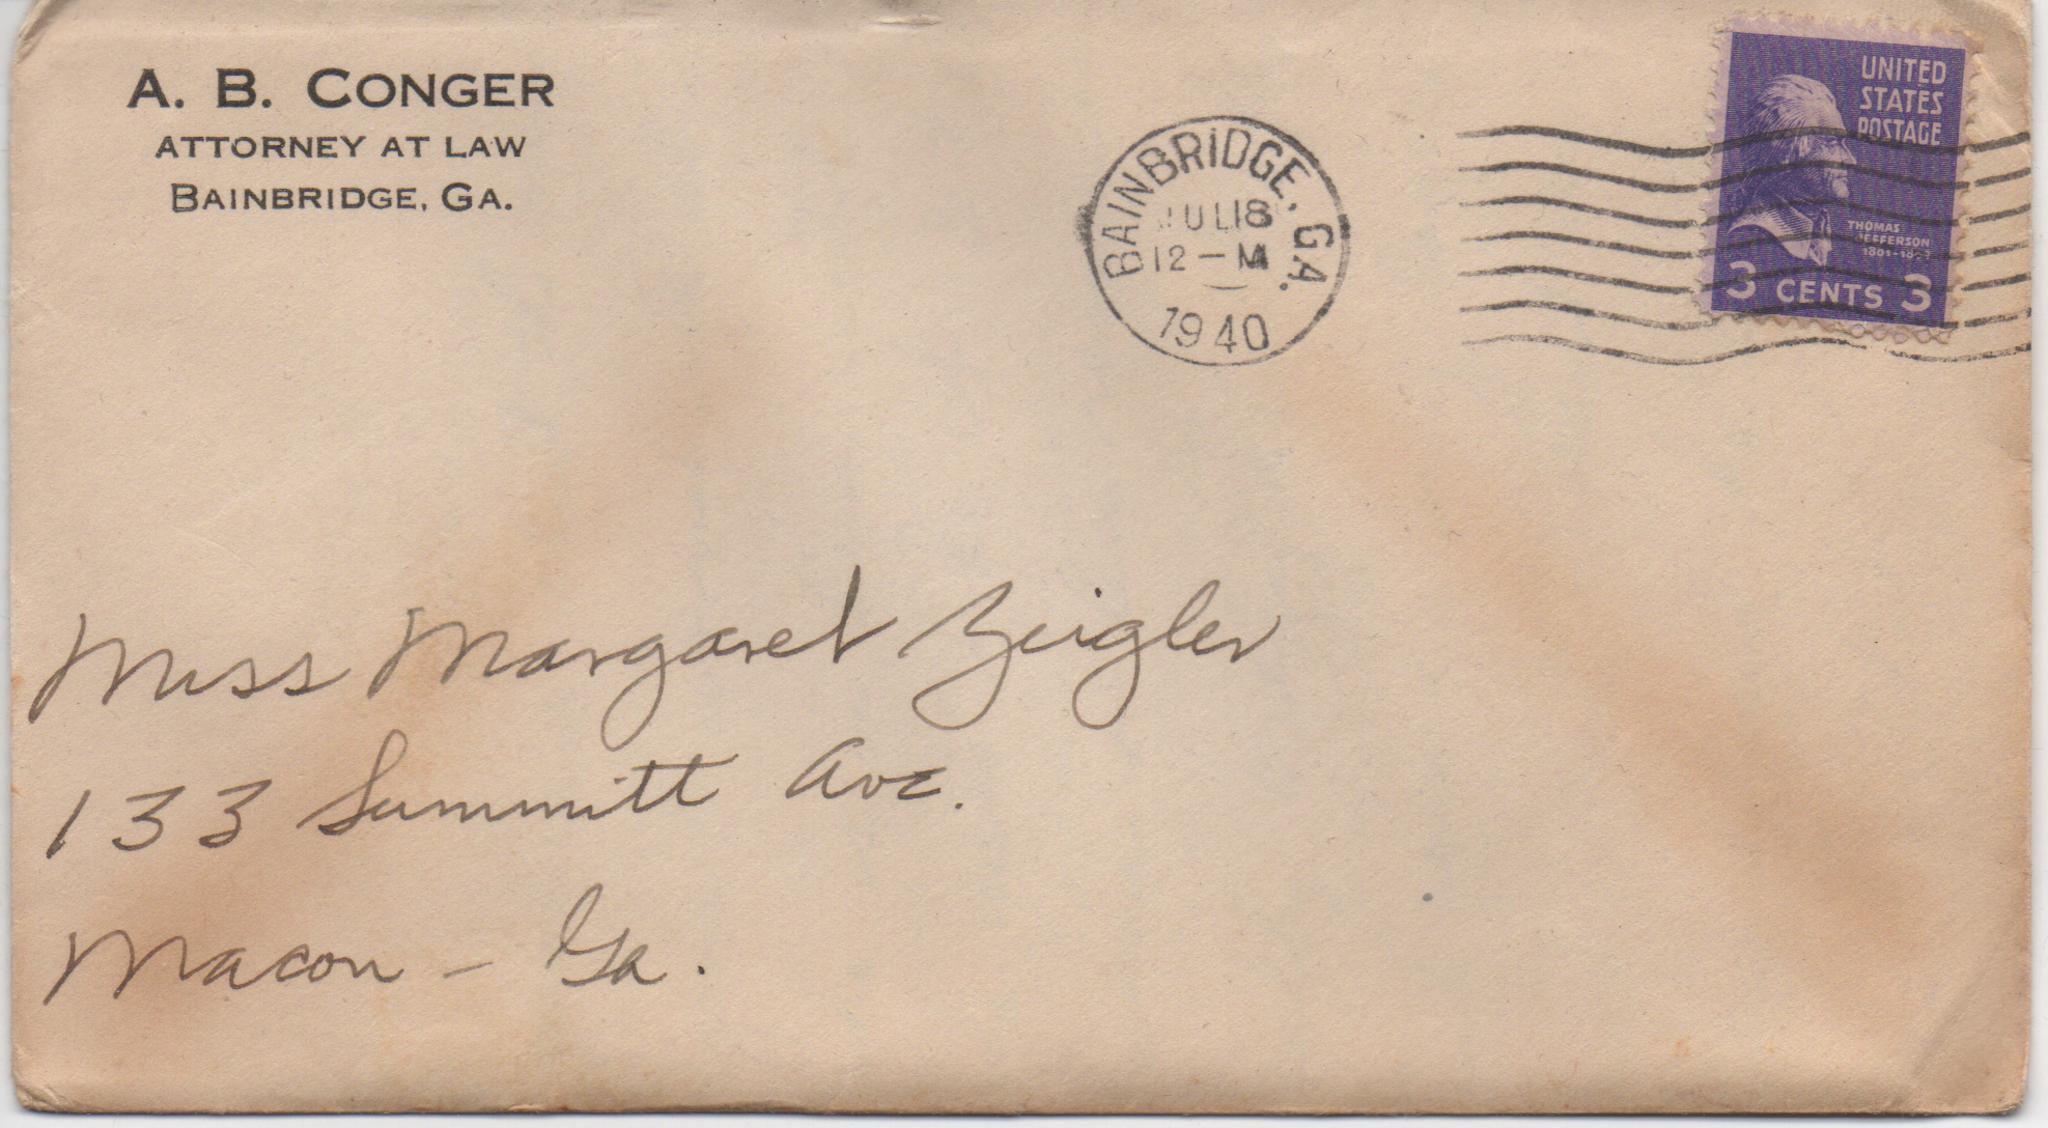 A. B. CONGER
ATTORNEY AT LAW
BAINBRIDGE, GA.
BAINBRIDGE, GA.
JUL 18
12 - M
1940
UNITED
STATES
POSTAGE
THOMAS
JEFFERSON
3 CENTS 3
Miss Margaret Zeigler
133 Summitt Ave.
Macon - Ga.